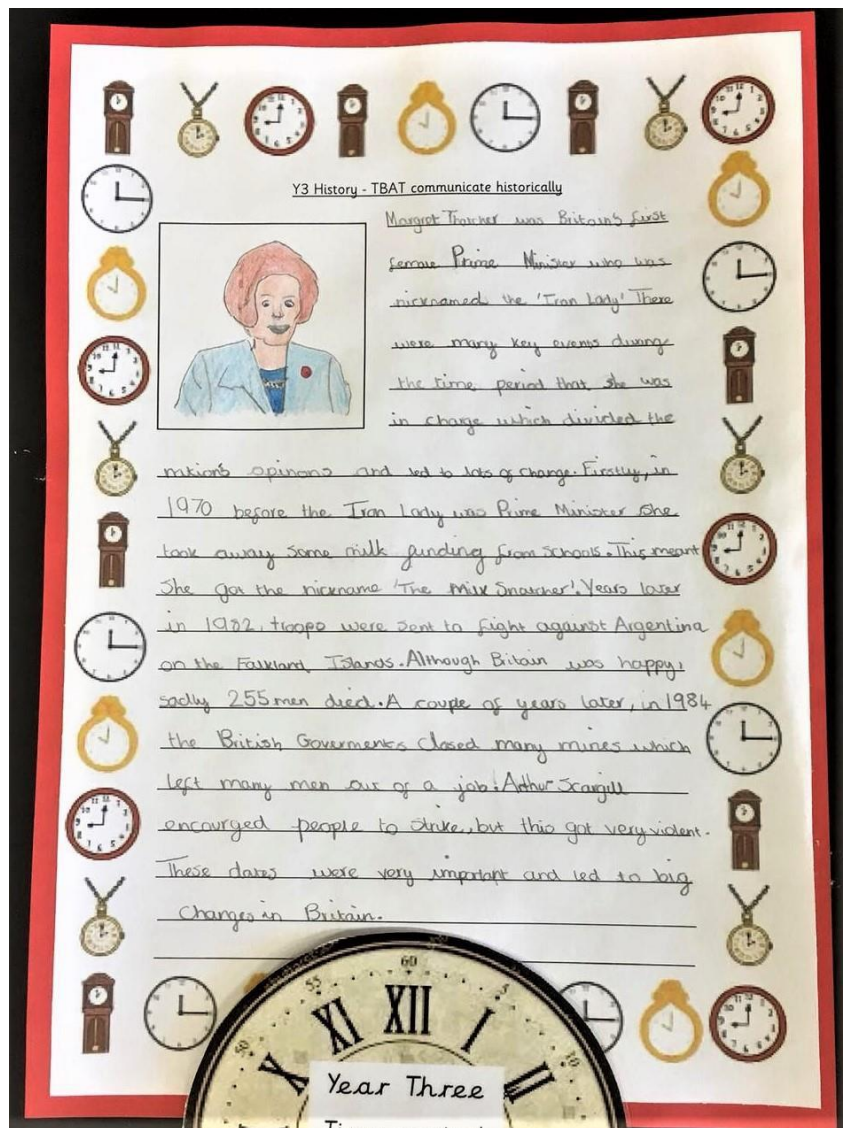 Y3 History - TBAT communicate historically
Margret Thatcher was Britain's first
female Prime Minister who was
nicknamed the 'Iron Lady' There
were many key events during
the time period that she was
in charge which divided the
nation's opinons and led to lots of change. Firstly, in
1970 before the Iron Lady was Prime Minister she
took away some milk funding from schools. This meant
she got the nickname 'The Milk Snatcher'. Years later
in 1982, troops were sent to fight against Argentina
on the Falkland Islands. Although Britain was happy,
sadly 255 men died. A couple of years later, in 1984
the British Goverments closed many mines which
left many men out of a job. Arthur Scargill
encourged people to strike, but this got very violent.
These dates were very important and led to big
changes in Britain.
55 60 5
50 10
X XI XII I II
Year Three